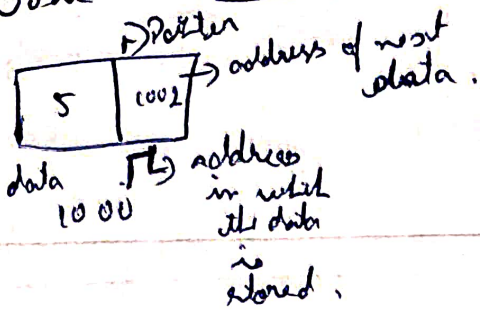 Pointer
address of next
data.
5
1002
data
1000
address
in which
the data
is
stored.